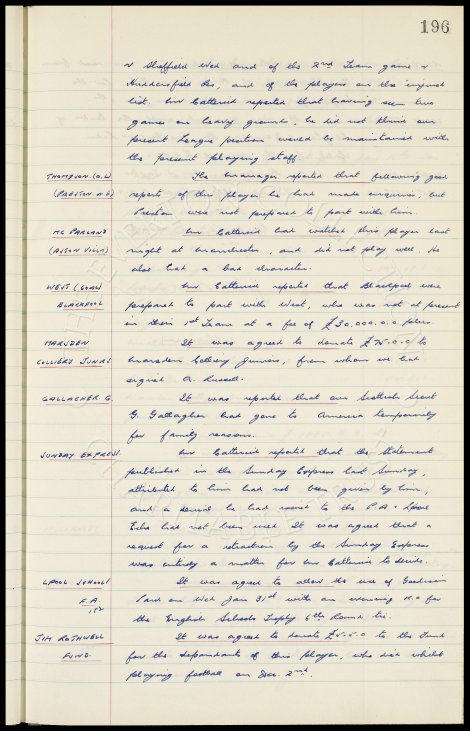 196
v Sheffield Wed and of the 2nd Team game v
Huddersfield Res, and of the players on the injured
list. Mr Catterick reported that having seen two
games on heavy grounds, he did not think our
present League position would be maintained with
the present playing staff.
THOMPSON (O.L) The Manager reported that following good
(PRESTON N.E) reports of this player he had made enquiries, but
Preston were not prepared to part with him.
MC PARLAND Mr Catterick had watched this player last
(ASTON VILLA) night at Manchester, and did not play well. He
also had a bad character.
WEST (GOAL) Mr Catterick reported that Blackpool were
BLACKPOOL prepared to part with West, who was not at present
in their 1st Team at a fee of £30.000.0.0 plus.
MARSDEN It was agreed to donate to
COLLIERY JUNRS Marsden Colliery Juniors, from whom we had
signed A. Russell.
GALLAGHER G. It was reported that our Scottish Scout
G. Gallagher had gone to America temporarily
for family reasons.
SUNDAY EXPRESS. Mr Catterick reported that the Statement
published in the Sunday Express last Sunday,
attributed to him had not been given by him,
and a denial he had issued to the P.A. & Lpool
Echo had not been used. It was agreed that a
request for a retraction by the Sunday Express
was entirely a matter for Mr Catterick to decide.
LPOOL SCHOOLS It was agreed to allow the use of Goodison
F.A. Park on Wed Jan 31st with an evening K.O for
the English Schools Trophy 6th Round tie.
JIM ROTHWELL It was agreed to donate to the Fund
FUND. for the dependants of this player, who died whilst
playing football on Dec. 2nd.